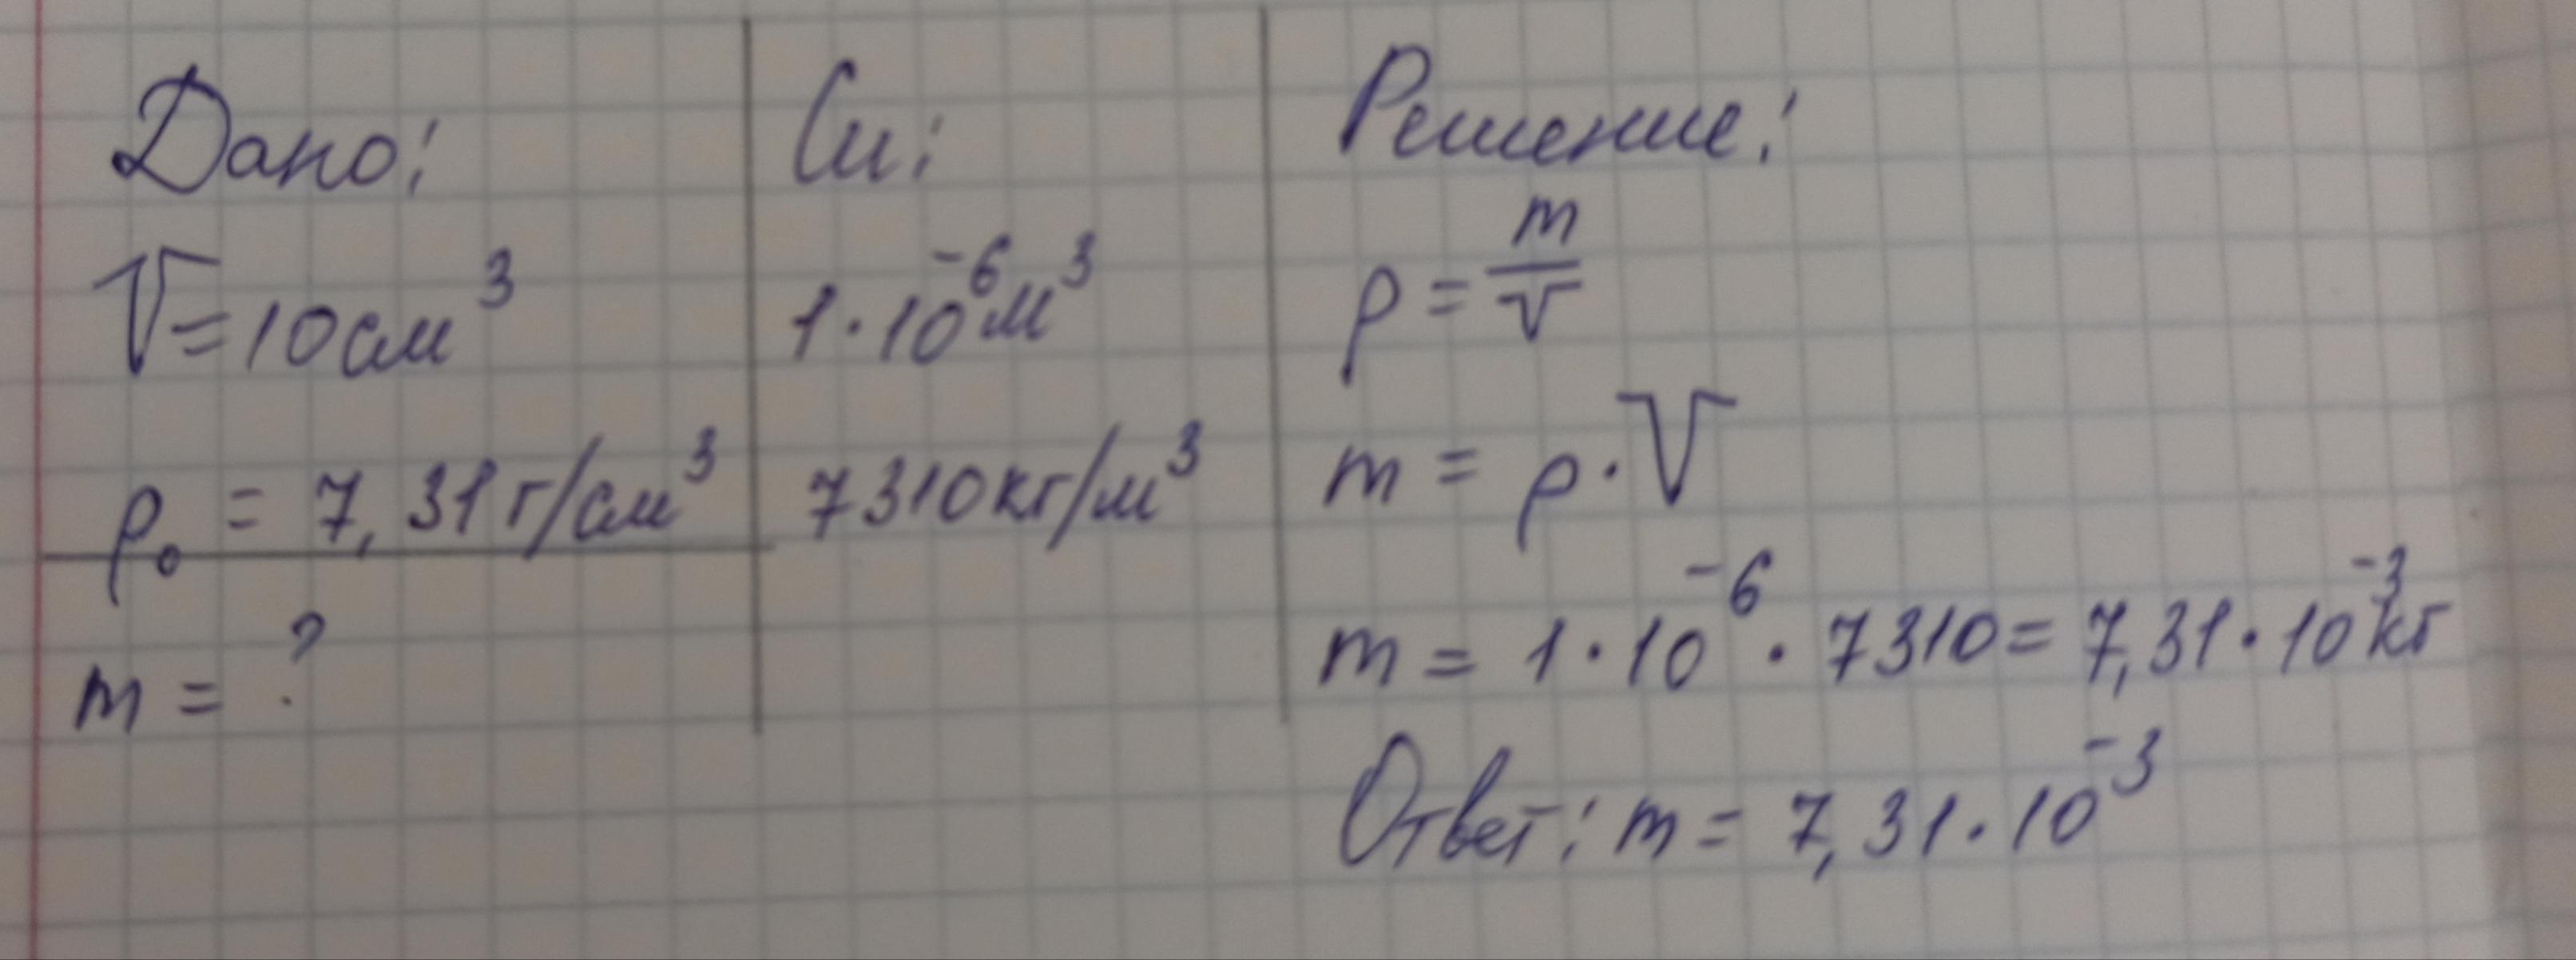 Дано:
V = 10 см³
ρ₀ = 7,31 г/см³
m = ?
Си:
1 · 10⁻⁶ м³
7310 кг/м³
Решение:
ρ = m/V
m = ρ · V
m = 1 · 10⁻⁶ · 7310 = 7,31 · 10⁻³ кг
Ответ: m = 7,31 · 10⁻³